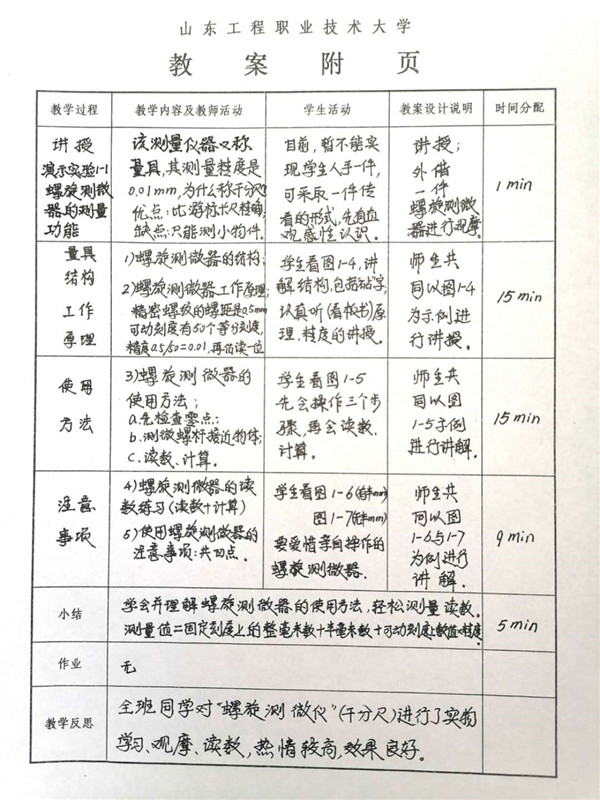 山东工程职业技术大学
教案附页
教学过程 教学内容及教师活动 学生活动 教案设计说明 时间分配
讲授
演示实验1-1
螺旋测微
器的测量
功能
该测量仪器又称
量具,其测量精度是
0.01mm,为什么称千分尺?
优点:比游标卡尺精确
缺点:只能测小物件.
目前,暂不能实
现学生人手一件,
可采取一件传
看的形式,先有直
观感性认识.
讲授;
外借
一件
螺旋测微
器进行观摩.
1 min
量具
结构
工作
原理
1)螺旋测微器的结构;
2)螺旋测微器工作原理;
精密螺纹的螺距是0.5mm
可动刻度有50个等分刻度,
精度0.5/50=0.01,再估读一位
学生看图1-4,讲
解结构,包括
认真听(看板书)原
理、精度的讲授。
师生共
同以图1-4
为示例进
行讲授.
15 min
使用
方法
3)螺旋测微器的
使用方法;
a.先检查零点;
b.测微螺杆接近物体;
c.读数、计算.
学生看图1-5
先会操作三个步
骤,再会读数、
计算.
师生共
同以图
1-5示例
进行讲解.
15 min
注意
事项
4)螺旋测微器的读
数练习(读数+计算)
5)使用螺旋测微器的
注意事项:共四点.
学生看图1-6
图1-7
要爱惜亲自操作的
螺旋测微器.
师生共
同以图
1-6与1-7
为例进行
讲解.
9 min
小结
学会并理解螺旋测微器的使用方法,轻松测量读数。
测量值=固定刻度上的整毫米数+半毫米数+可动刻度上数值×精度
5 min
作业
无
教学反思
全班同学对“螺旋测微仪”(千分尺)进行了实物
学习、观摩、读数,热情较高,效果良好。